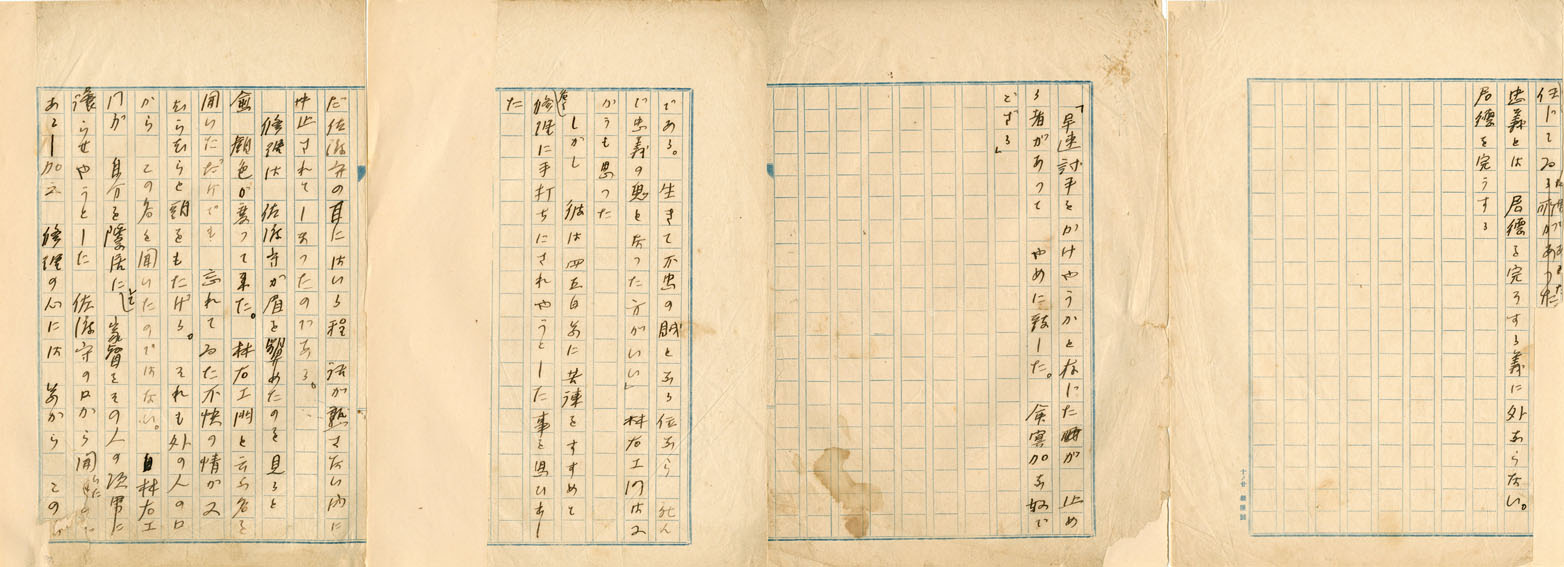 任じてゐる所があつた
忠義とは 居徳を完うする義に外ならない。
居徳を完うする
「早速討手をかけやうかと存じた所が 止め
る者があつて やめに致した。 命冥加な奴で
ござる」
である。 生きて不忠の賊となる位なら 死ん
で忠義の鬼となつた方がいい」 林右エ門は又
かうも思つた
しかし 彼は四五日前に苦諫をすすめて
修理に手打ちにされやうとした事を思ひ出し
た
だ佐渡守の耳にはいる程 話が熟さない内に
中止されてしまつたのである。
修理は 佐渡守が眉を顰めたのを見ると
愈 顔色が変つて来た。 林右エ門と云ふ名を
聞いただけでも 忘れてゐた不快の情が又
むらむらと頭をもたげる。 それも外の人の口
から この名を聞いたのではない。 林右エ
門が 自分を隠居にし 家督をその人の次男に
譲らせやうとした 佐渡守の口から聞いた
加之 修理の心には 前から この
十ノ廿